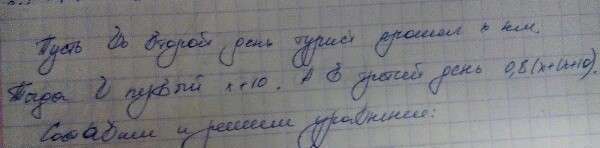 Пусть во второй день турист прошел x км.
Тогда в первый x+10. А в третий день 0,8(x+(x+10).
Составим и решим уравнение: